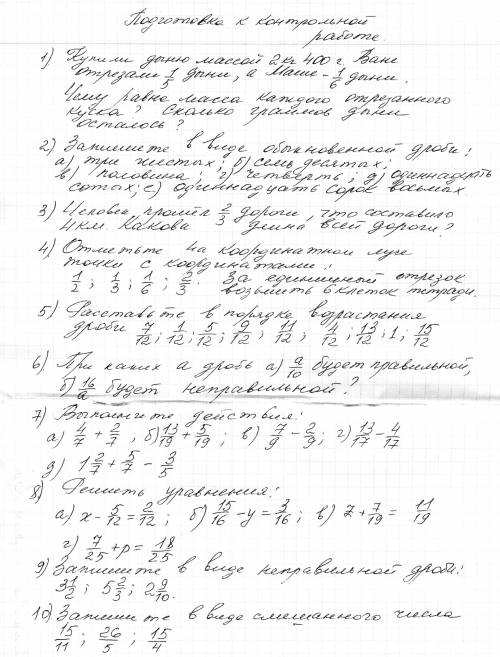 Подготовка к контрольной
работе.
1) Купили дыню массой 2кг 400 г. Ване
отрезали 1/5 дыни, а Маше - 1/6 дыни.
Чему равна масса каждого отрезанного
куска? Сколько граммов дыни
осталось?
2) Запишите в виде обыкновенной дроби:
а) три шестых; б) семь десятых;
в) половина; г) четверть; д) одиннадцать
сотых; е) одиннадцать сорок восьмых.
3) Человек прошёл 2/3 дороги, что составило
4км. Какова длина всей дороги?
4) Отметьте на координатном луче
точки с координатами:
1/2; 1/3; 1/6; 2/3. За единичный отрезок
возьмите 6 клеток тетради.
5) Расставьте в порядке возрастания
дроби 7/12; 1/12; 5/12; 9/12; 11/12; 4/12; 13/12; 1; 15/12
6) При каких а дробь а) а/10 будет правильной,
б) 16/а будет неправильной?
7) Выполните действия:
а) 4/7 + 2/7, б) 13/19 + 5/19; в) 7/9 - 2/9; г) 13/17 - 4/17
д) 1 2/7 + 5/7 - 3/5
8) Решить уравнения:
а) x - 5/12 = 2/12; б) 15/16 - y = 3/16; в) z + 7/19 = 11/19
г) 7/25 + p = 18/25
9) Запишите в виде неправильной дроби:
3 1/2; 5 2/3; 2 9/10.
10) Запишите в виде смешанного числа
15/11; 26/5; 15/4